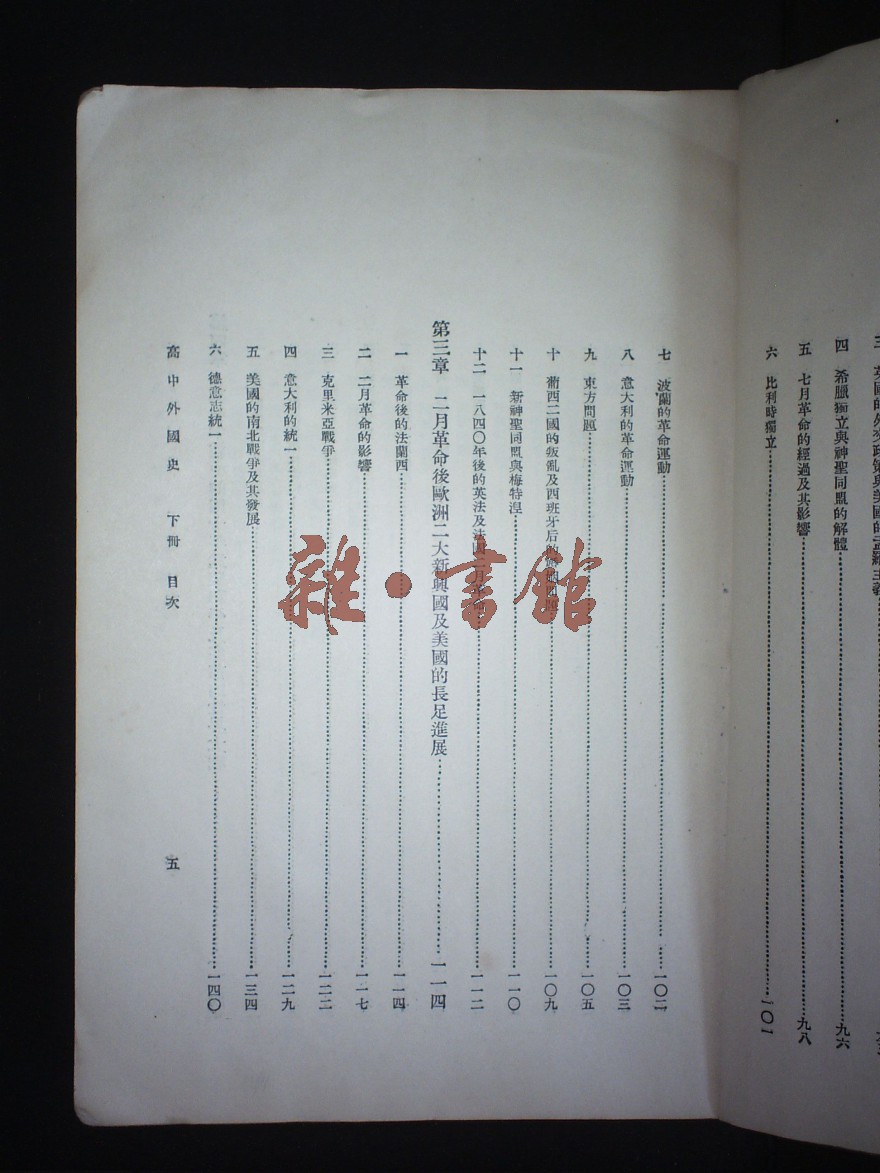 四 希臘獨立與神聖同盟的解體……九六
五 七月革命的經過及其影響……九八
六 比利時獨立……一〇一
七 波蘭的革命運動……一〇二
八 意大利的革命運動……一〇三
九 東方問題……一〇五
十 葡西二國的叛亂及西班牙后的……一〇九
十一 新神聖同盟與梅特涅……一一〇
十二 一八四〇年後的英法及法國二月革命……一一二
第三章 二月革命後歐洲二大新興國及美國的長足進展……一一四
一 革命後的法蘭西……一一四
二 二月革命的影響……一一七
三 克里米亞戰爭……一二二
四 意大利的統一……一二九
五 美國的南北戰爭及其發展……一三四
六 德意志統一……一四〇
高中外國史 下冊 目次
五
雜·書館